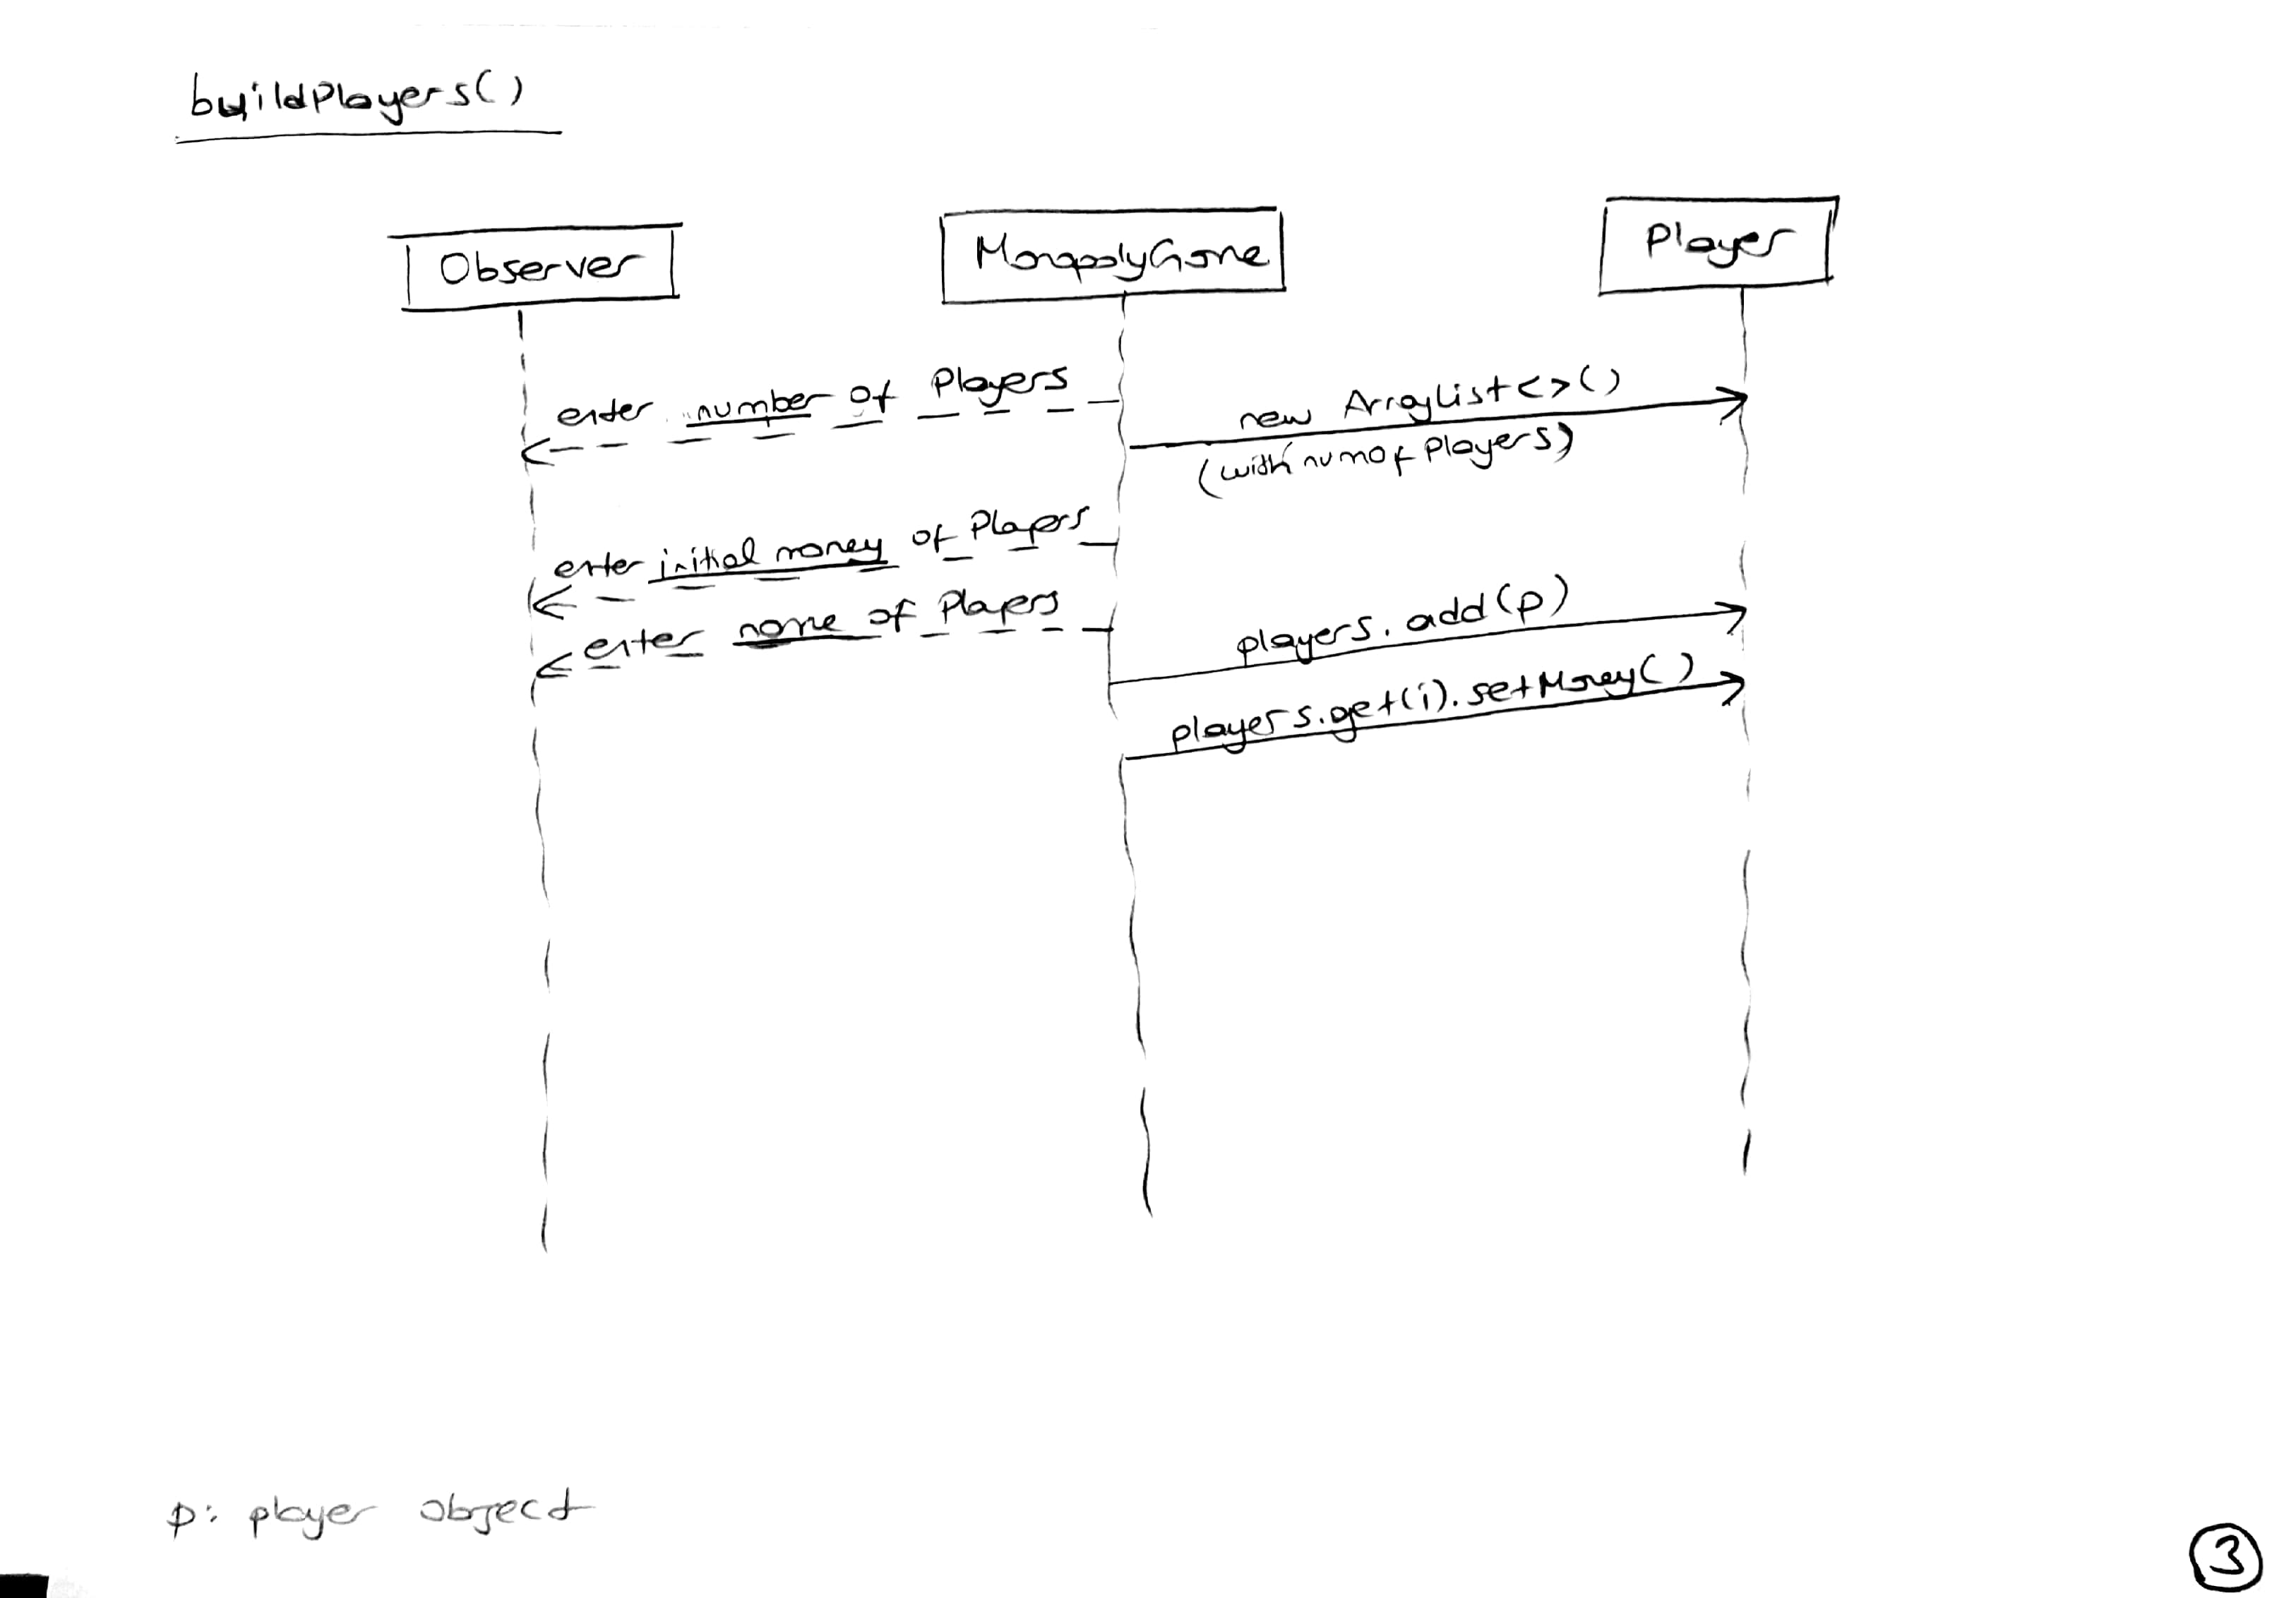 buildPlayers()
Observer
MonopolyGame
Player
enter number of Players
new ArrayList<>()
(with numof Players)
enter initial money of Players
enter name of Players
players.add(p)
players.get(i).setMoney()
p: player object
3